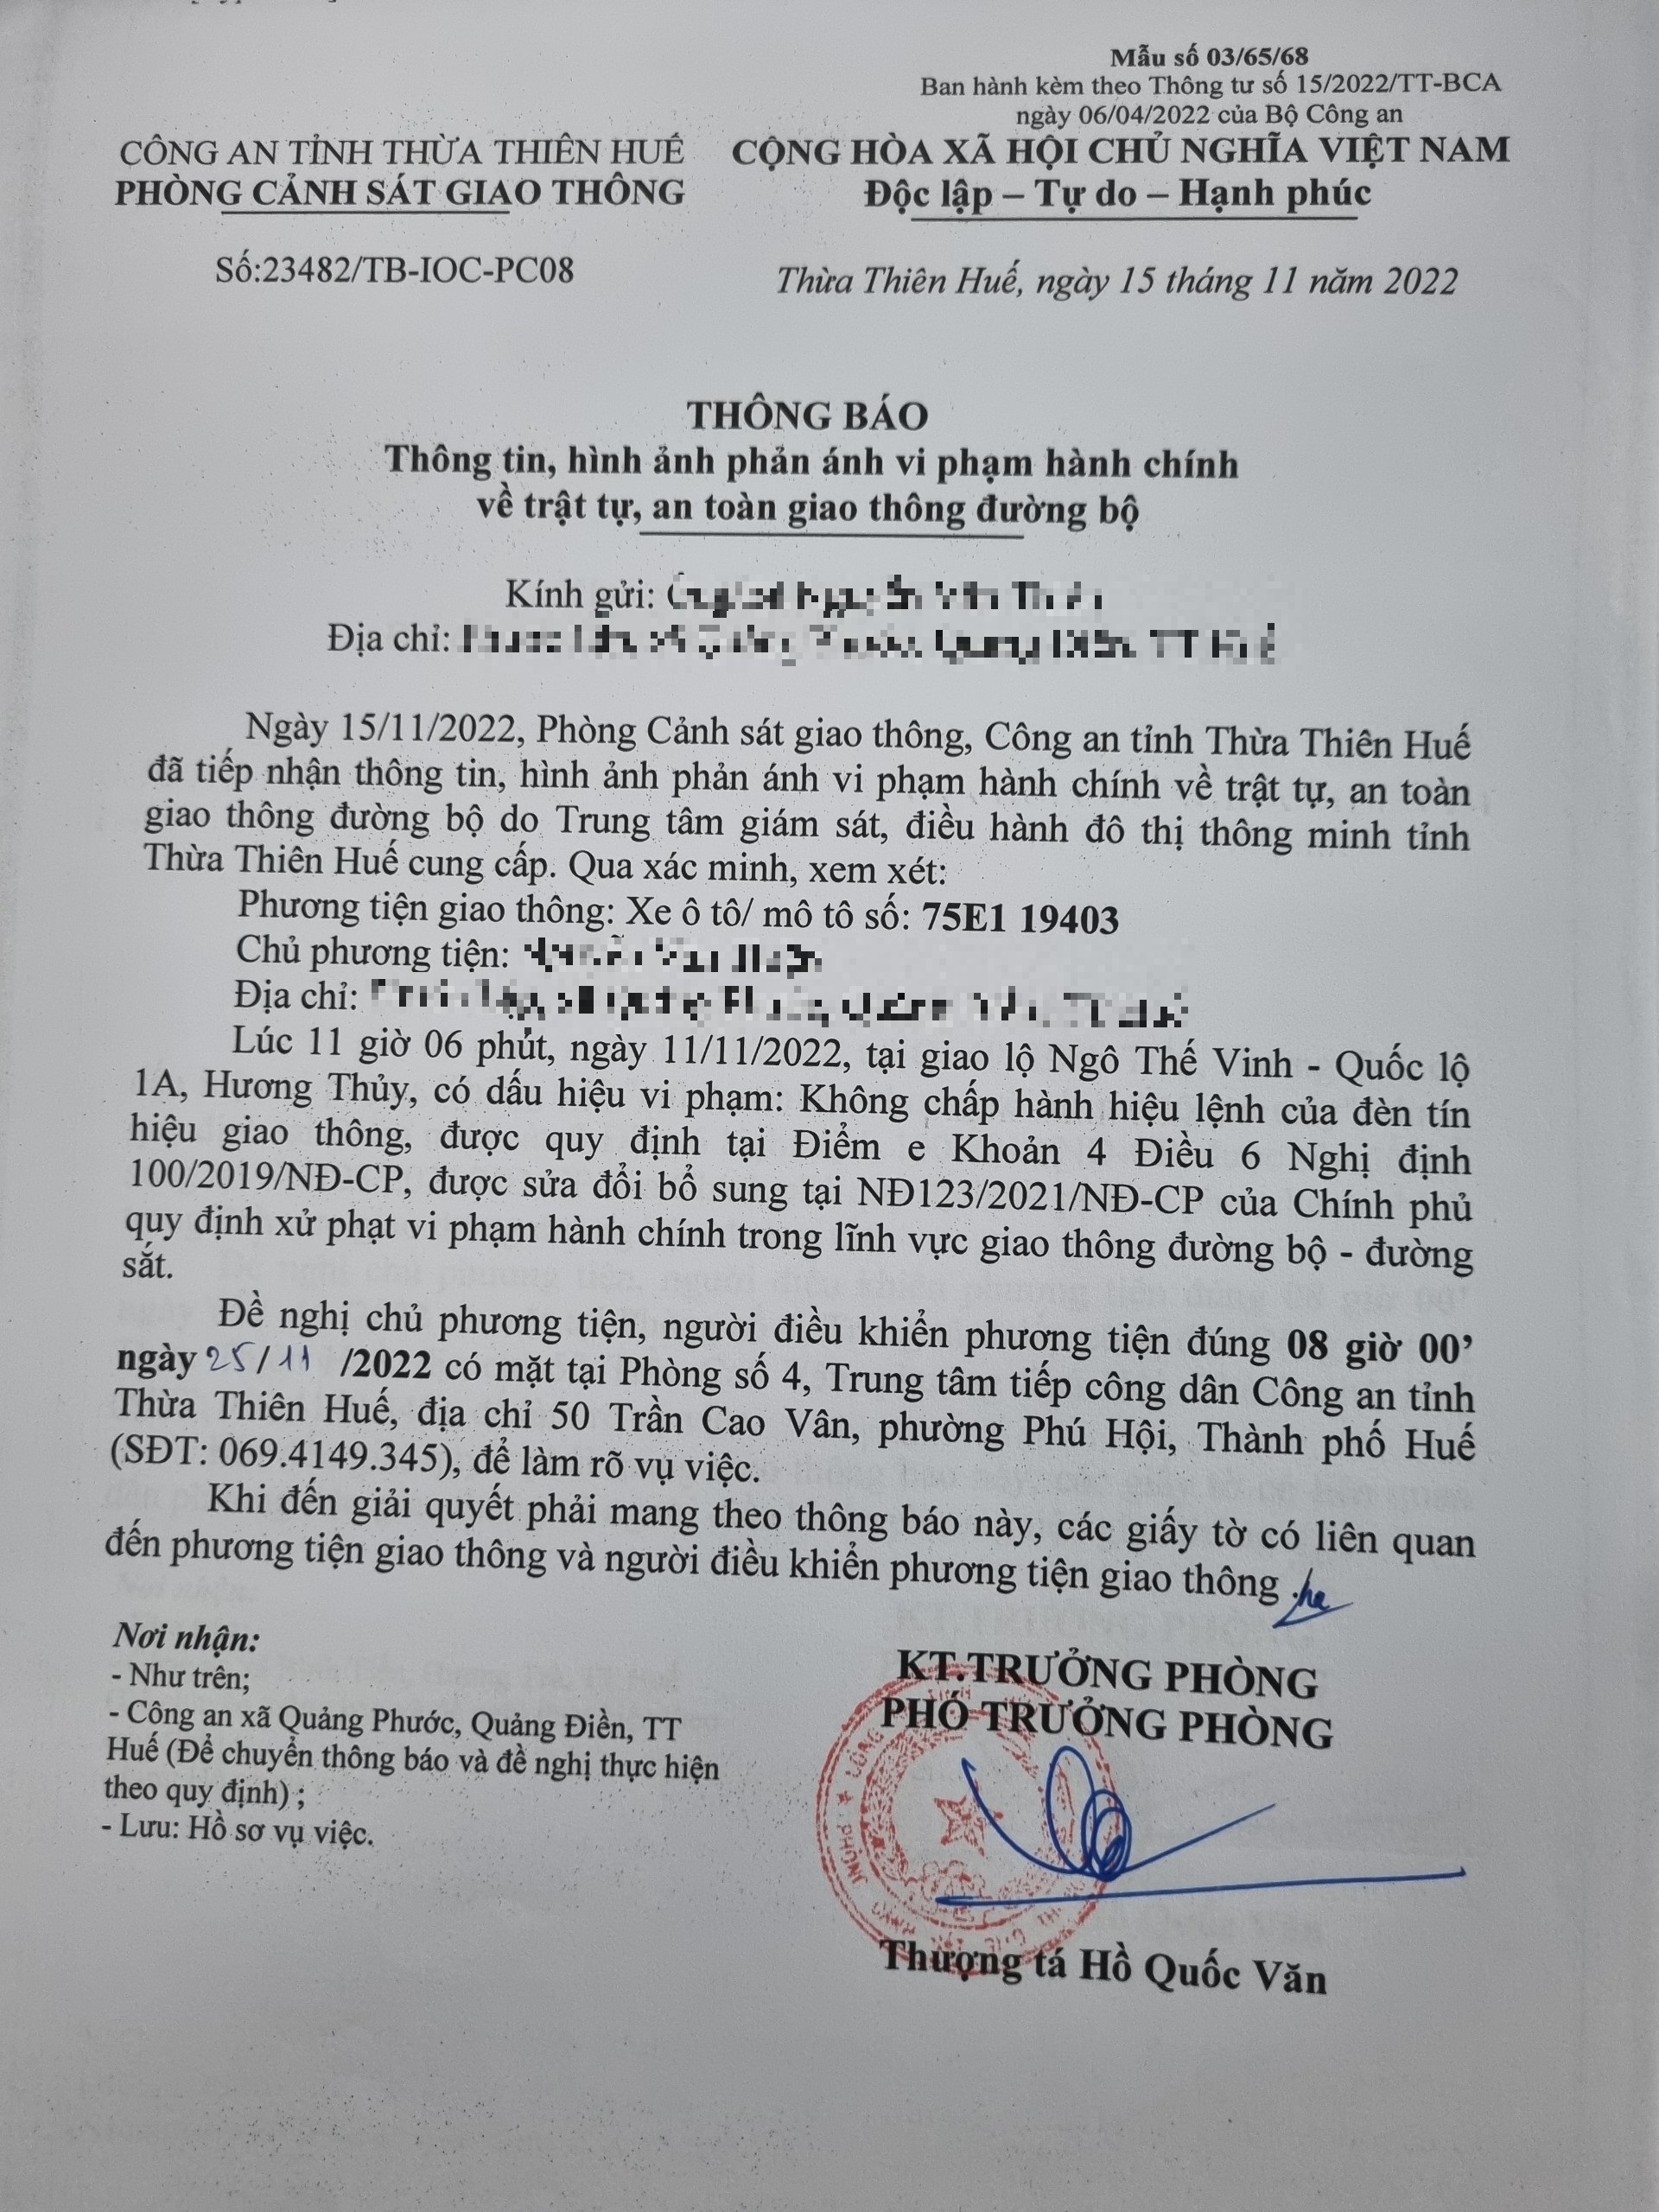 Mẫu số 03/65/68
Ban hành kèm theo Thông tư số 15/2022/TT-BCA
ngày 06/04/2022 của Bộ Công an
CÔNG AN TỈNH THỪA THIÊN HUẾ
PHÒNG CẢNH SÁT GIAO THÔNG
CỘNG HÒA XÃ HỘI CHỦ NGHĨA VIỆT NAM
Độc lập – Tự do – Hạnh phúc
Số:23482/TB-IOC-PC08
Thừa Thiên Huế, ngày 15 tháng 11 năm 2022
THÔNG BÁO
Thông tin, hình ảnh phản ánh vi phạm hành chính
về trật tự, an toàn giao thông đường bộ
Kính gửi:
Địa chỉ:
Ngày 15/11/2022, Phòng Cảnh sát giao thông, Công an tỉnh Thừa Thiên Huế
đã tiếp nhận thông tin, hình ảnh phản ánh vi phạm hành chính về trật tự, an toàn
giao thông đường bộ do Trung tâm giám sát, điều hành đô thị thông minh tỉnh
Thừa Thiên Huế cung cấp. Qua xác minh, xem xét:
Phương tiện giao thông: Xe ô tô/ mô tô số: 75E1 19403
Chủ phương tiện:
Địa chỉ:
Lúc 11 giờ 06 phút, ngày 11/11/2022, tại giao lộ Ngô Thế Vinh - Quốc lộ
1A, Hương Thủy, có dấu hiệu vi phạm: Không chấp hành hiệu lệnh của đèn tín
hiệu giao thông, được quy định tại Điểm e Khoản 4 Điều 6 Nghị định
100/2019/NĐ-CP, được sửa đổi bổ sung tại NĐ123/2021/NĐ-CP của Chính phủ
quy định xử phạt vi phạm hành chính trong lĩnh vực giao thông đường bộ - đường
sắt.
Đề nghị chủ phương tiện, người điều khiển phương tiện đúng 08 giờ 00’
ngày 25/11 /2022 có mặt tại Phòng số 4, Trung tâm tiếp công dân Công an tỉnh
Thừa Thiên Huế, địa chỉ 50 Trần Cao Vân, phường Phú Hội, Thành phố Huế
(SĐT: 069.4149.345), để làm rõ vụ việc.
Khi đến giải quyết phải mang theo thông báo này, các giấy tờ có liên quan
đến phương tiện giao thông và người điều khiển phương tiện giao thông.
Nơi nhận:
- Như trên;
- Công an xã Quảng Phước, Quảng Điền, TT
Huế (Để chuyển thông báo và đề nghị thực hiện
theo quy định) ;
- Lưu: Hồ sơ vụ việc.
KT.TRƯỞNG PHÒNG
PHÓ TRƯỞNG PHÒNG
Thượng tá Hồ Quốc Văn